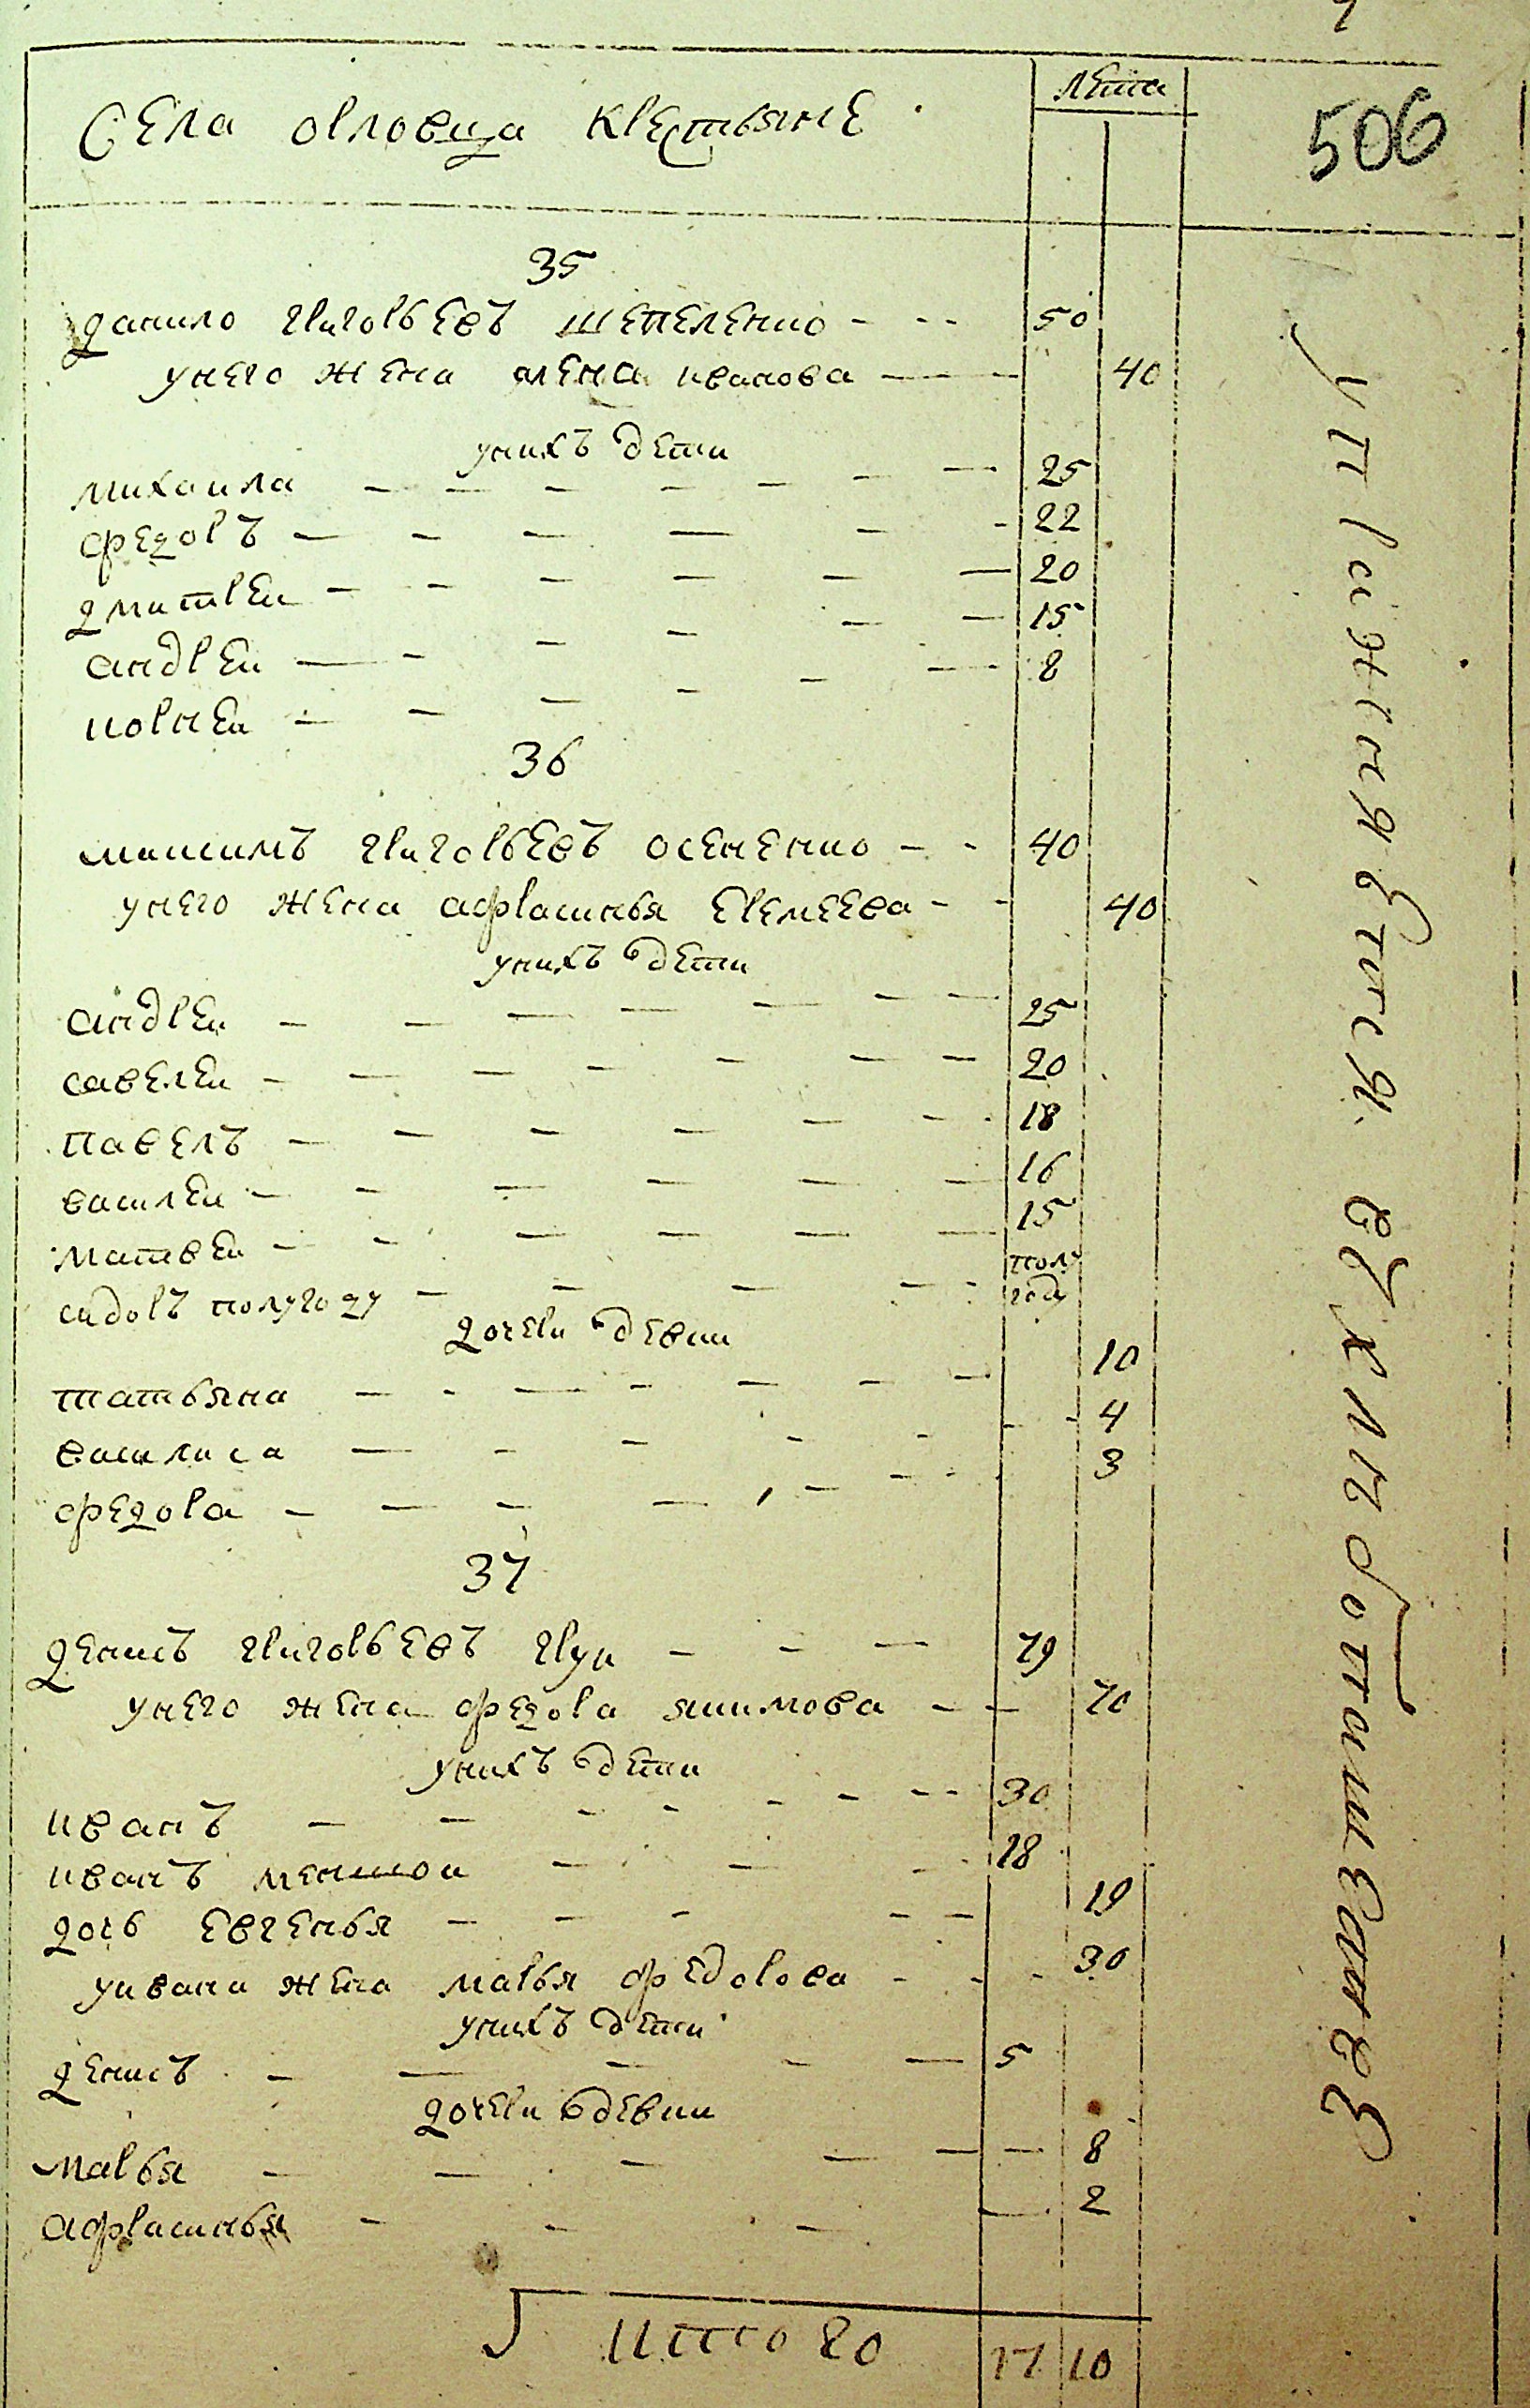 лета
506
Села орловца крестьяне
35
данило григорьевъ шепеленко 50
унего жена алена иванова 40
унихъ дети
михаила 25
федоръ 22
дмитреи 20
андреи 15
корнеи 8
36
максимъ григорьевъ осененко 40
унего жена афрасинья еремеева 40
унихъ дети
андреи 25
савелеи 20
павелъ 18
василеи 16
матвеи 15
сидоръ полугоду полугоду
дочери девки
татьяна 10
василиса 4
федора 3
37
денисъ григорьевъ 79
унего жена федора якимова 70
унихъ дети
иванъ 30
иванъ меншои 18
дочь евгенья 19
уивана жена марья федорова 30
унихъ дети
денисъ 5
дочери девки
марья 8
афрасинья 2
итого 80 17 10
упражняется вхлебопашестве